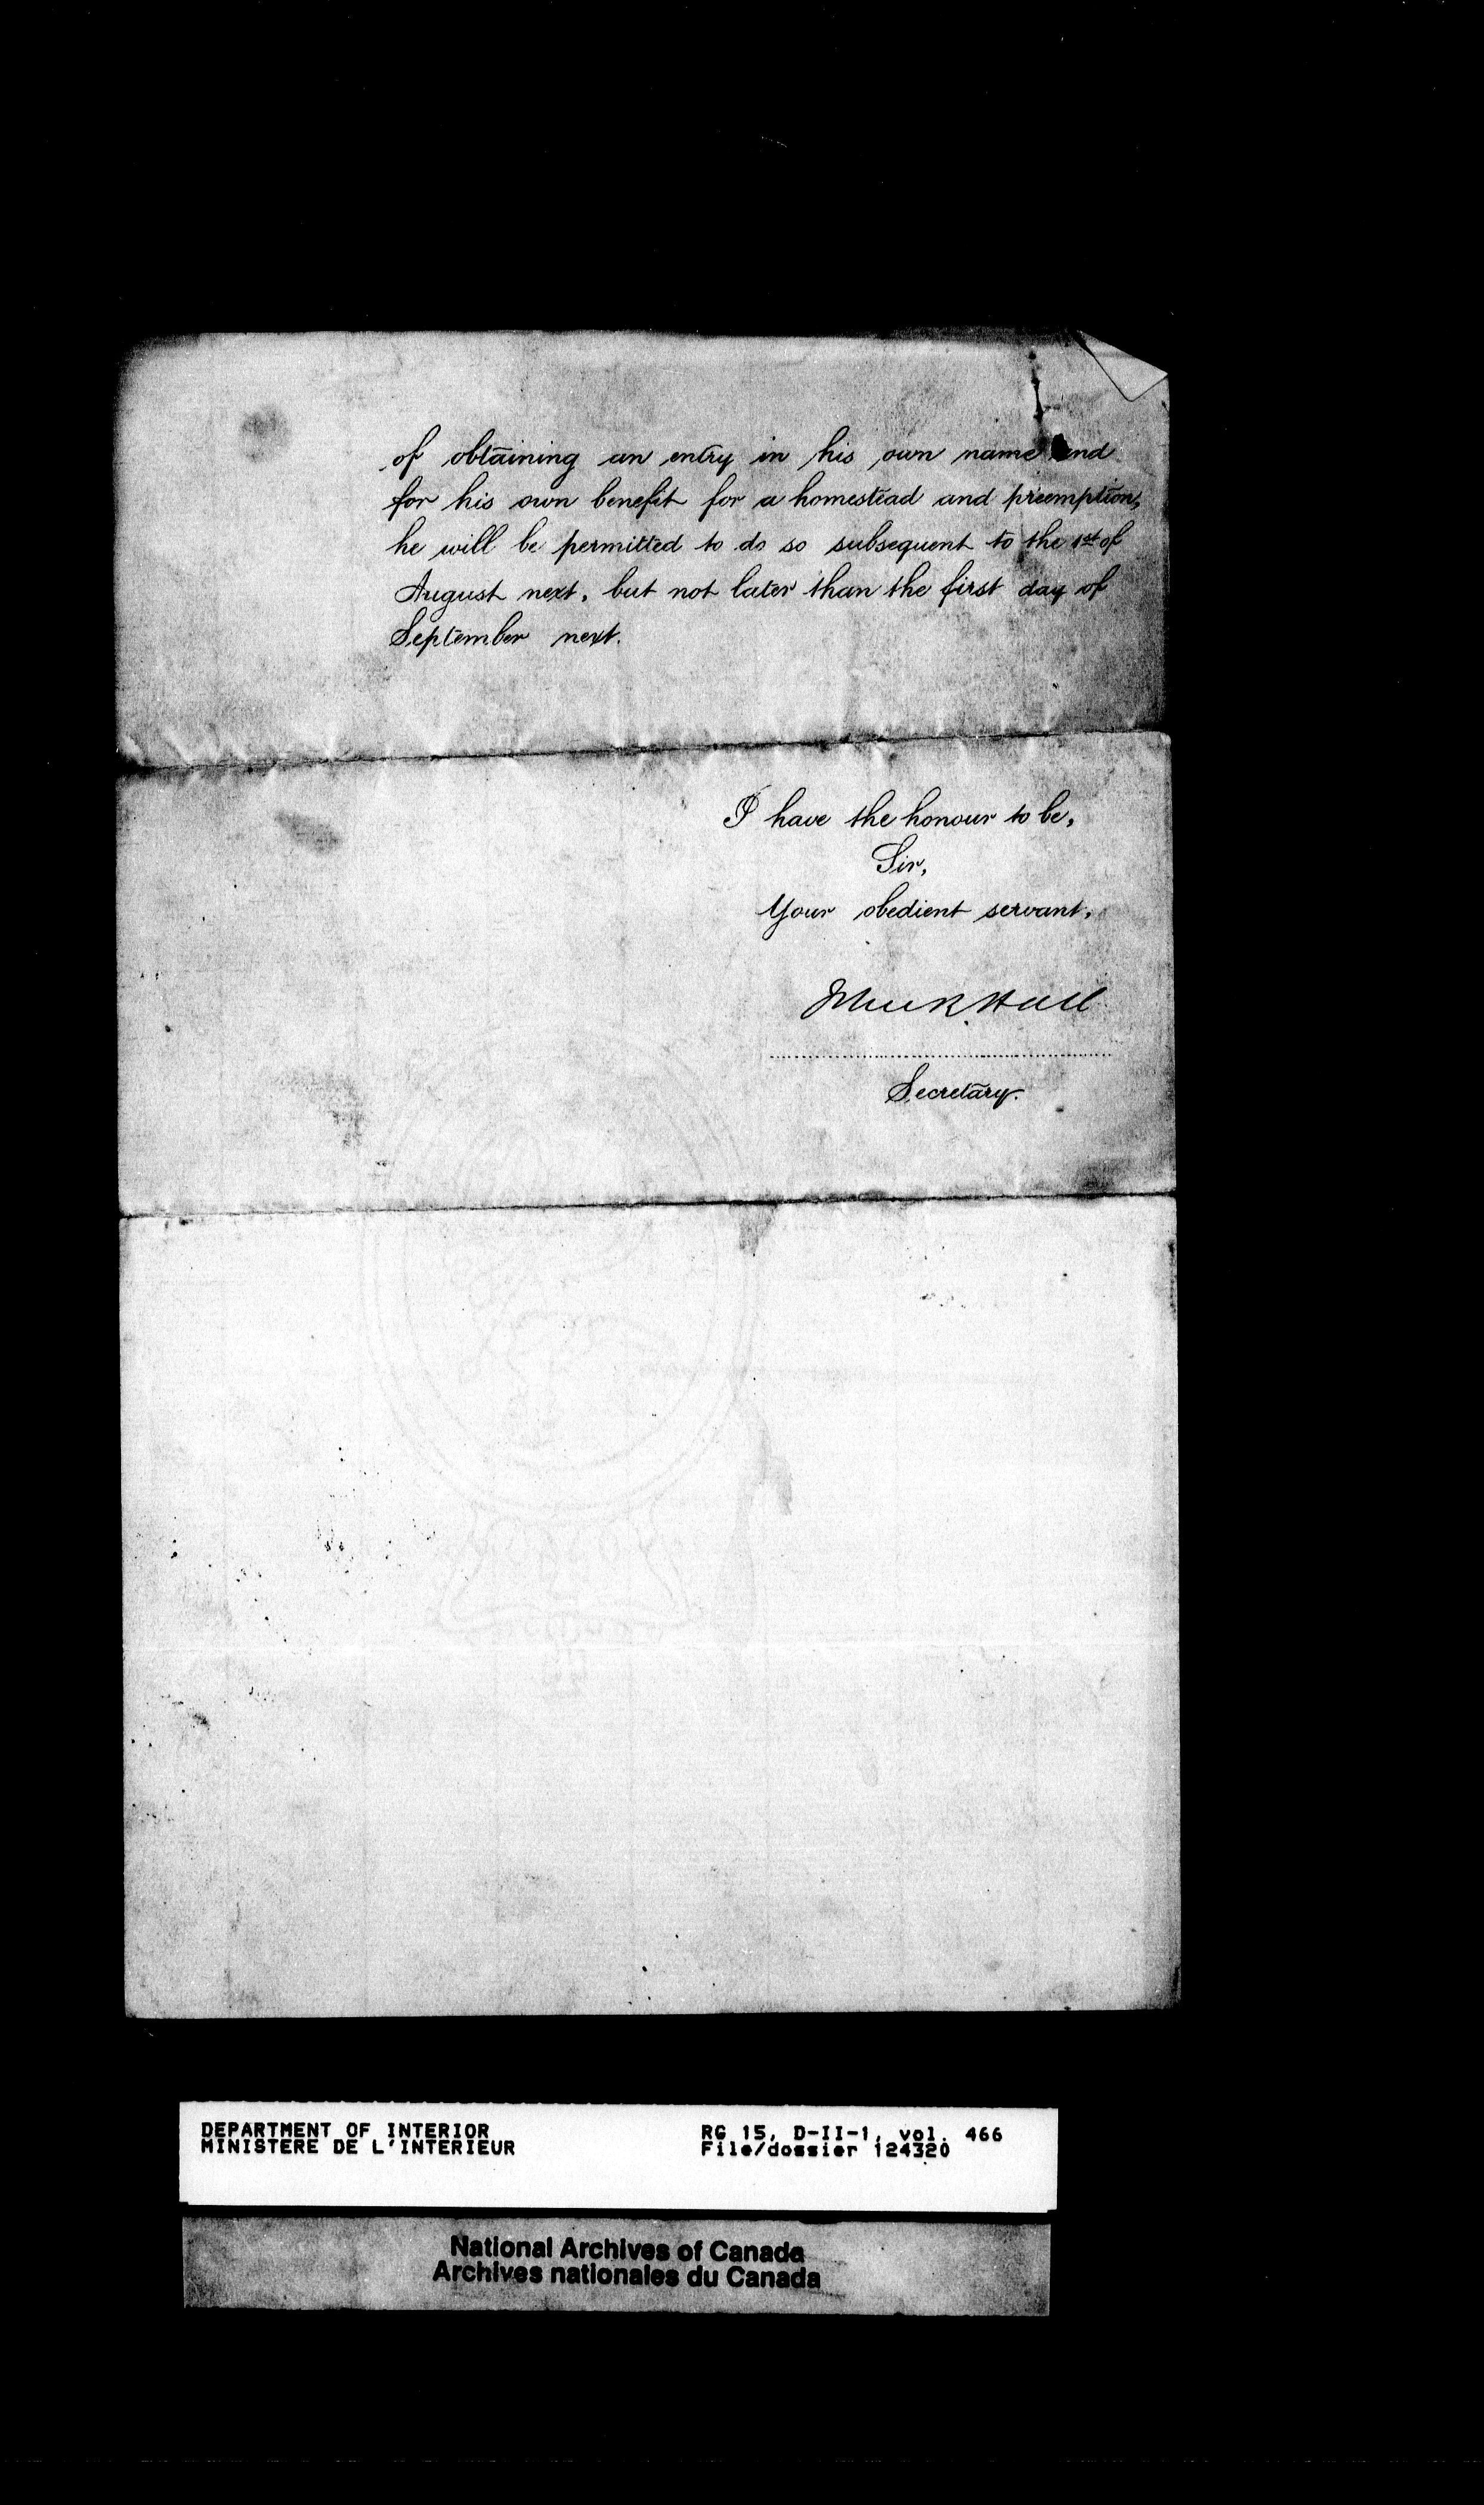 of obtaining an entry in his own name and
for his own benefit for a homestead and preemption,
he will be permitted to do so subsequent to the 1st of
August next, but not later than the first day of
September next.
I have the honour to be,
Sir,
Your obedient servant,
Hall
Secretary.
DEPARTMENT OF INTERIOR
MINISTERE DE L'INTERIEUR
RG 15, D-II-1, vol. 466
File/dossier 124320
National Archives of Canada
Archives nationales du Canada